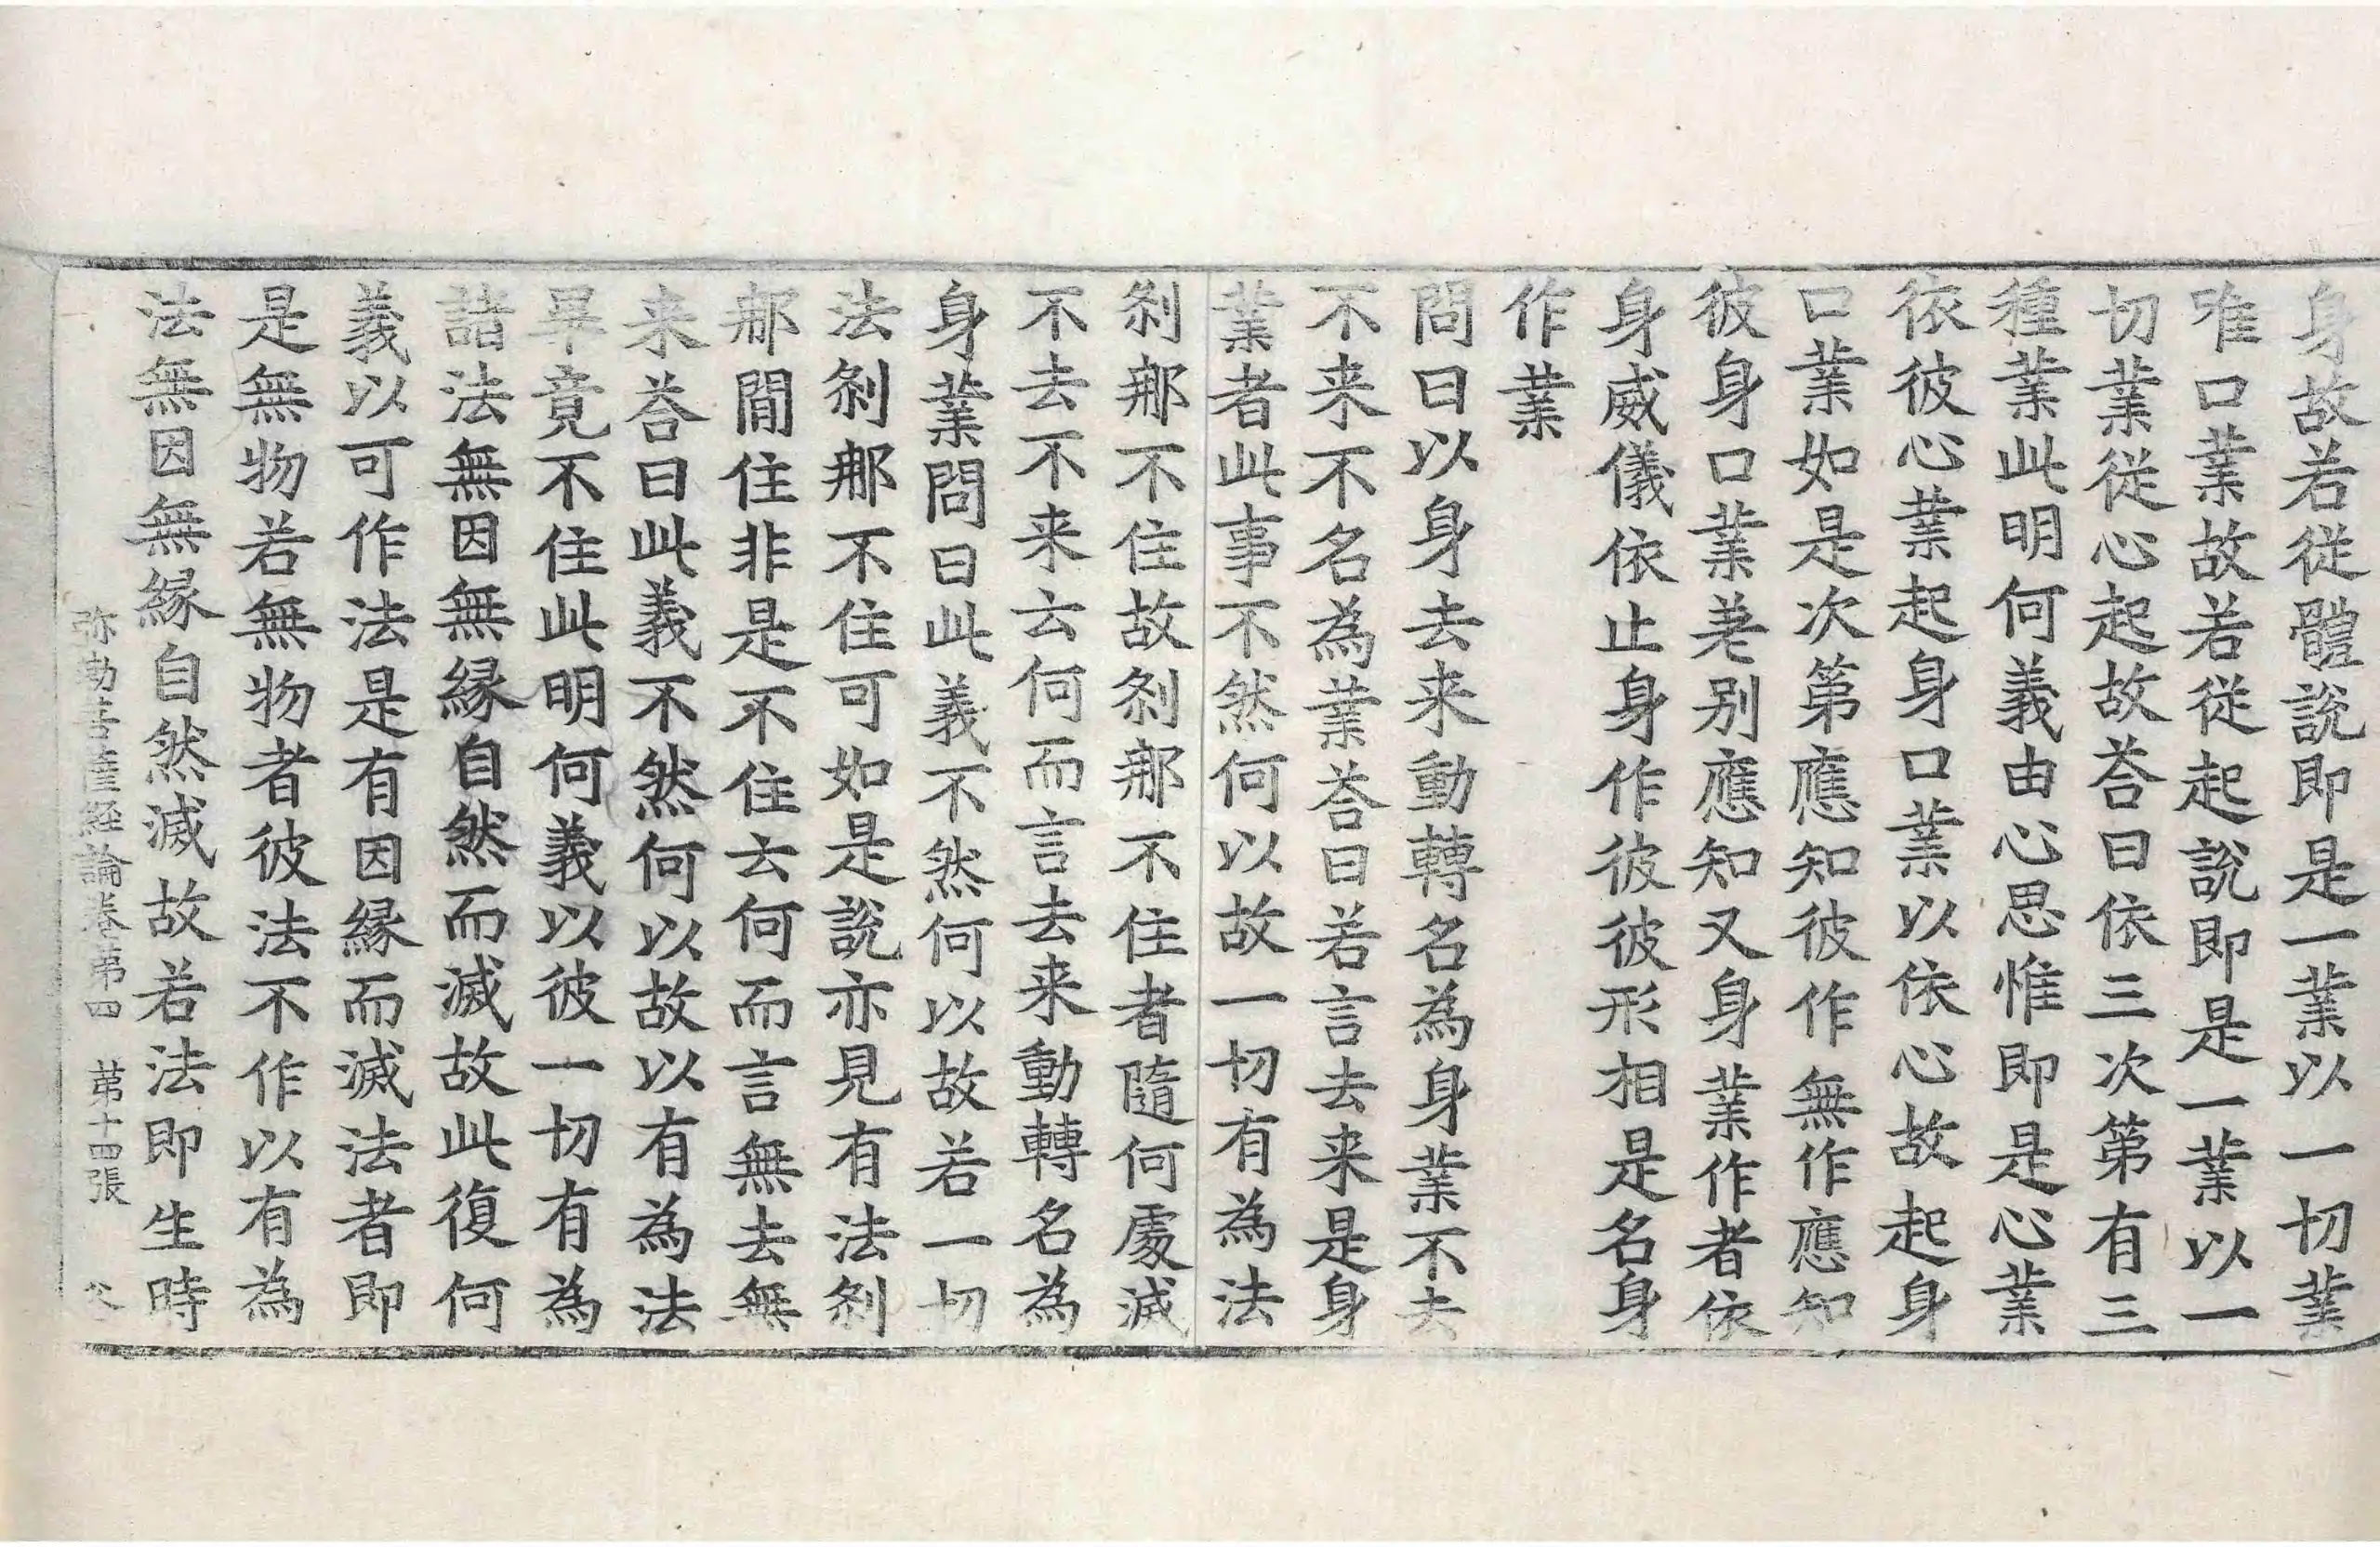 身故若從體說即是一業以一切業
唯口業故若從起說即是一業以一
切業從心起故荅曰依三次第有三
種業此明何義由心思惟即是心業
依彼心業起身口業以依心故起身
口業如是次第應知彼作無作應知
彼身口業差别應知又身業作者依
身威儀依止身作彼彼形相是名身
作業
問曰以身去来動轉名為身業不去
不来不名為業荅曰若言去来是身
業者此事不然何以故一切有為法
刹那不住故刹那不住者隨何處滅
不去不来云何而言去来動轉名為
身業問曰此義不然何以故若一切
法刹那不住可如是說亦見有法刹
那閒住非是不住云何而言無去無
来荅曰此義不然何以故以有為法
畢竟不住此明何義以彼一切有為
諸法無因無縁自然而滅故此復何
義以可作法是有因縁而滅法者即
是無物若無物者彼法不作以有為
法無因無縁自然滅故若法即生時
弥勒菩薩経論卷第四　苐十四張